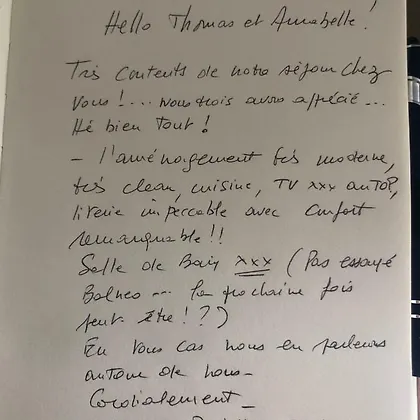 Hello Thomas et Annabelle!
Très contents de notre séjour chez
vous!... nous trois avons apprécié...
Hé bien tout!
- l'aménagement très moderne,
très clean, cuisine, TV xxx
literie impeccable avec confort
remarquable!!
Salle de Bain xxx (Pas essayé
Balneo --- la prochaine fois
peut-être!??)
En tous cas nous en parlerons
autour de nous-
Cordialement-